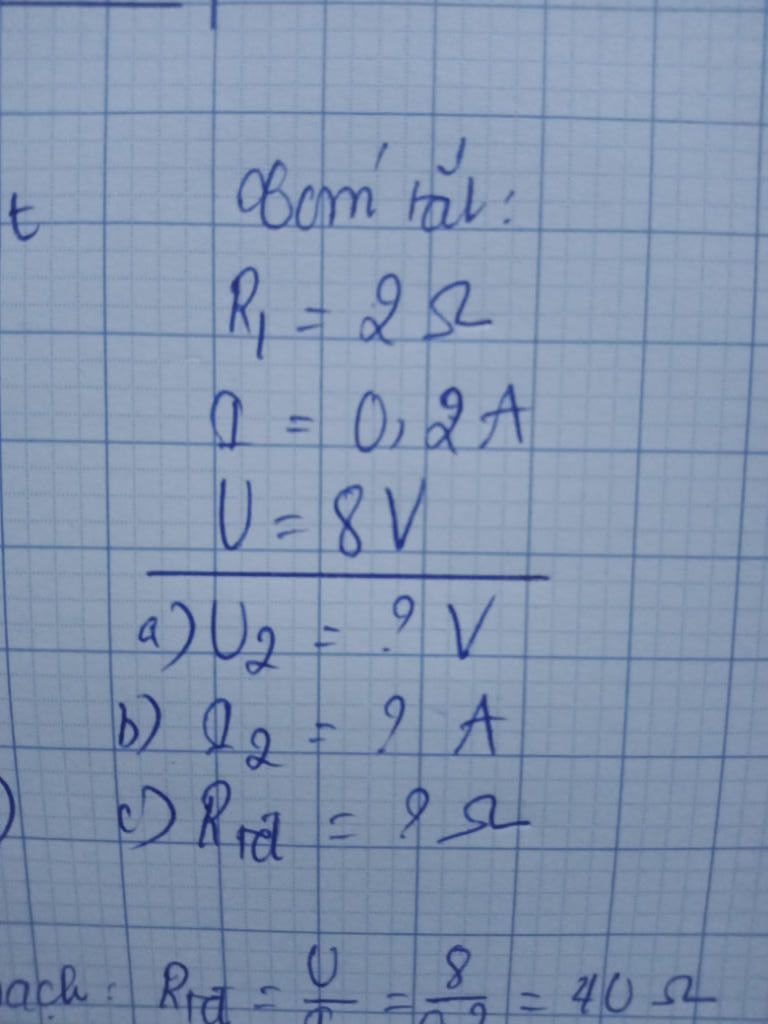 t
Tóm tắt:
R₁ = 2 Ω
I = 0,2 A
U = 8 V
a) U₂ = ? V
b) I₂ = ? A
c) Rtđ = ? Ω
)
ạch: Rtđ = U/I = 8/0,2 = 40 Ω